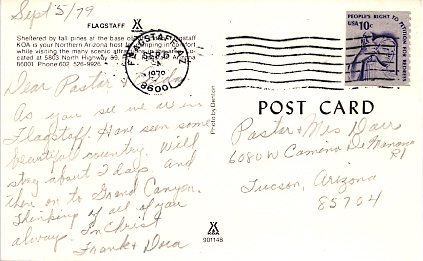 Sept 5/79
FLAGSTAFF
Sheltered by tall pines at the base of Flagstaff
KOA is your Northern Arizona host to camping in comfort
while visiting the many scenic attractions
cated at 5803 North Highway 89, Arizona
86001 Phone 602 526-9926
FLAGSTAFF, AZ
SEP
1979
86001
PEOPLE'S RIGHT TO PETITION FOR REDRESS
USA 10c
Dear Pastor &
As you see we are in
Flagstaff. Have seen some
beautiful country. Will
stay about 2 days and
then on to Grand Canyon.
Thinking of all of you
always. In Christ
Frank & Dora
Photo by Denton
POST CARD
Pastor & Mrs
6080 W Camino De
Tucson, Arizona
85704
KOA
901148